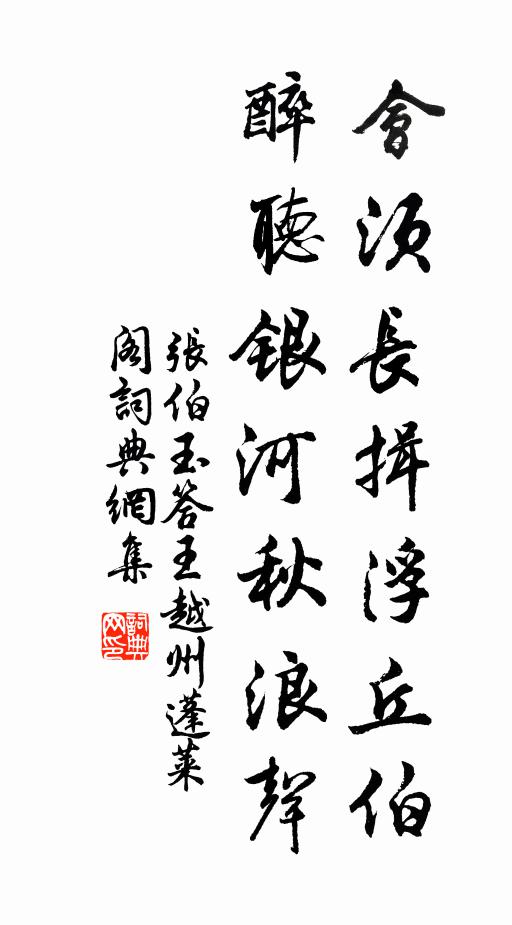 會須長揖浮丘伯
醉聽銀河秋浪聲
張伯玉答王越州蓬萊
閣詞典網集
詞典網印